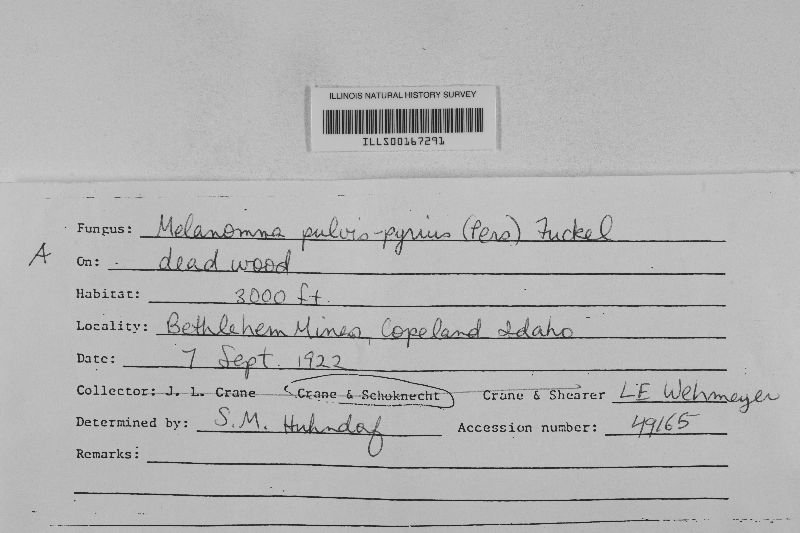 ILLINOIS NATURAL HISTORY SURVEY
ILLS00167291
Fungus: Melanomma pulvis-pyrius (Pers) Fuckel
A
On: dead wood
Habitat: 3000 ft.
Locality: Bethlehem Mines, Copeland Idaho
Date: 7 Sept. 1922
Collector: J. L. Crane Crane & Schoknecht Crane & Shearer LE Wehmeyer
Determined by: S.M. Huhndorf Accession number: 49165
Remarks: